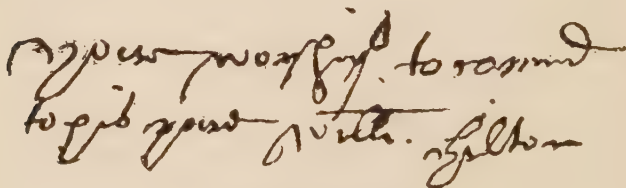 youre worships to comaund
to his powre Willi. Hilton